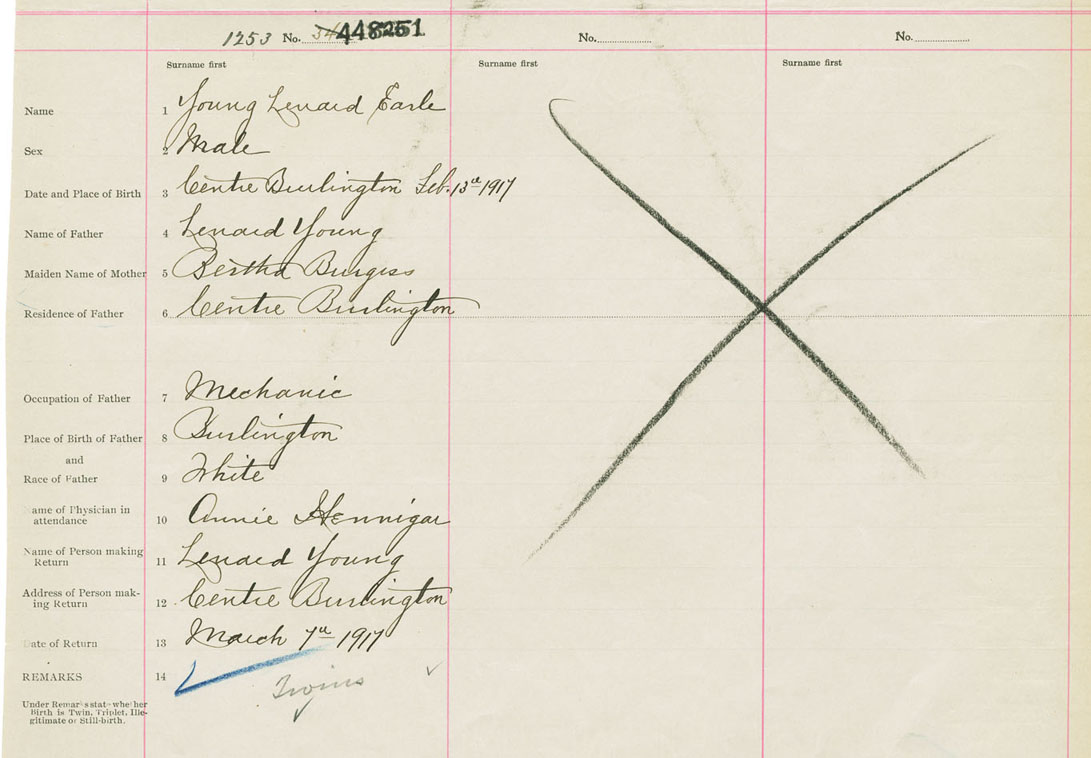 1253 No. 448251 No. No.
Surname first Surname first Surname first
Name 1 Young Lenard Earle
Sex 2 Male
Date and Place of Birth 3 Centre Burlington Feb. 13th 1917
Name of Father 4 Lenard Young
Maiden Name of Mother 5 Bertha Burgess
Residence of Father 6 Centre Burlington
Occupation of Father 7 Mechanic
Place of Birth of Father 8 Burlington
and
Race of Father 9 White
ame of Physician in
attendance 10 Annie Hennigar
Name of Person making
Return 11 Lenard Young
Address of Person mak-
ing Return 12 Centre Burlington
Date of Return 13 March 7th 1917
REMARKS 14
Twins
Under Remarks state whether
Birth is Twin, Triplet, Ille-
gitimate or Still-birth.